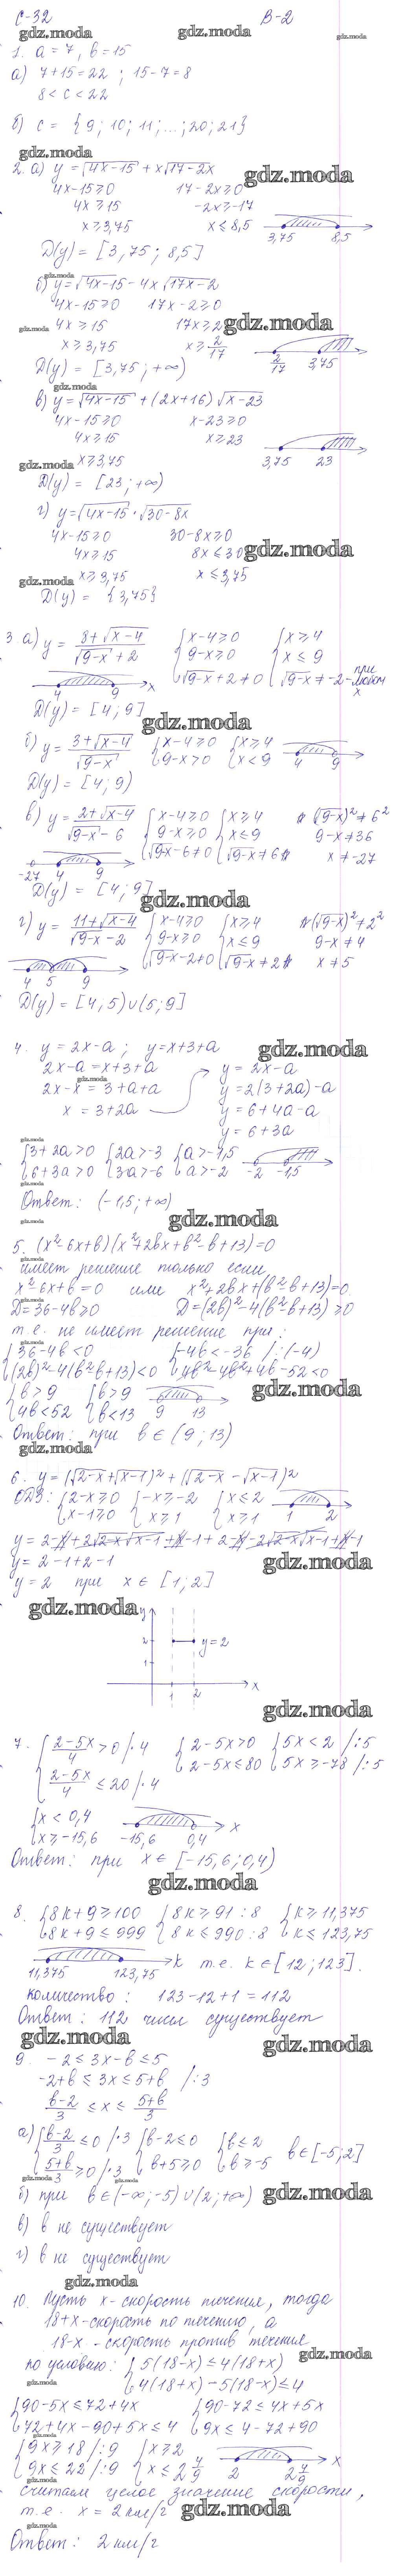 С-32 В-2
gdz.moda gdz.moda gdz.moda
1. a = 7, b = 15
а) 7+15=22 ; 15-7=8
8 < c < 22
б) c = {9; 10; 11; ...; 20; 21}
gdz.moda
2. а) y = √(4x-15) + x√(17-2x) gdz.moda
4x-15≥0 17-2x≥0
4x≥15 -2x≥-17
x≥3,75 x≤8,5
3,75 8,5
D(y) = [3,75; 8,5]
gdz.moda
б) y=√(4x-15) - 4x√(17x-2)
4x-15≥0 17x-2≥0
gdz.moda 4x≥15 17x≥2 gdz.moda
x≥3,75 x≥2/17
2/17 3,75
D(y) = [3,75; +∞)
gdz.moda
в) y=√(4x-15) + (2x+16)√(x-23)
4x-15≥0 x-23≥0
4x≥15 x≥23
gdz.moda x≥3,75
3,75 23
D(y) = [23; +∞)
г) y=√(4x-15) · √(30-8x)
4x-15≥0 30-8x≥0 gdz.moda
4x≥15 8x≤30
gdz.moda x≥3,75 x≤3,75
D(y) = {3,75}
3 а) y = (8+√(x-4))/(√(9-x)+2) {x-4≥0 {x≥4
9-x≥0 x≤9
√(9-x)+2≠0 √(9-x)≠-2 - при любом x
4 9 x
D(y) = [4; 9] gdz.moda
б) y = (3+√(x-4))/√(9-x) {x-4≥0 {x≥4
9-x>0 x<9
4 9
D(y) = [4; 9)
в) y = (2+√(x-4))/(√(9-x)-6) {x-4≥0 {x≥4 (√(9-x))²≠6²
9-x≥0 x≤9 9-x≠36
√(9-x)-6≠0 √(9-x)≠6 x≠-27
-27 4 9
D(y) = [4; 9] gdz.moda
г) y = (11+√(x-4))/(√(9-x)-2) {x-4≥0 {x≥4 (√(9-x))²≠2²
9-x≥0 x≤9 9-x≠4
√(9-x)-2≠0 √(9-x)≠2 x≠5
4 5 9
D(y) = [4; 5)∪(5; 9]
4. y = 2x-a; y=x+3+a gdz.moda
2x-a=x+3+a y = 2x-a
2x-x = 3+a+a y=2(3+2a)-a
x = 3+2a y = 6+4a-a
y = 6+3a
gdz.moda
{3+2a>0 {2a>-3 {a>-1,5
6+3a>0 3a>-6 a>-2
-2 -1,5
gdz.moda
Ответ: (-1,5; +∞)
gdz.moda gdz.moda
5. (x²-6x+b)(x²+2bx+b²-b+13)=0
имеет решение только если
gdz.moda
x²-6x+b=0 или x²+2bx+(b²-b+13)=0
D=36-4b≥0 D=(2b)²-4(b²-b+13)≥0
т.е. не имеет решение при:
gdz.moda
{36-4b<0 {-4b<-36 /:(-4)
(2b)²-4(b²-b+13)<0 4b²-4b²+4b-52<0
{b>9 {b>9 gdz.moda
4b<52 b<13 9 13
Ответ: при b∈(9; 13)
gdz.moda
6. y=(√(2-x)+√(x-1))²+(√(2-x)-√(x-1))²
ОДЗ: {2-x≥0 {-x≥-2 {x≤2
x-1≥0 x≥1 x≥1
1 2
y=2-x+2√(2-x)√(x-1)+x-1+2-x-2√(2-x)√(x-1)+x-1
y= 2-1+2-1 gdz.moda
y=2 при x∈[1; 2]
gdz.moda
y
2 y=2
1
1 2 x
gdz.moda
7. {(2-5x)/4>0 /·4 {2-5x>0 {5x<2 /:5
(2-5x)/4≤20 /·4 2-5x≤80 5x≥-78 /:5
{x<0,4
x≥-15,6 -15,6 0,4 x
Ответ: при x∈[-15,6; 0,4)
gdz.moda
8. {8k+9≥100 {8k≥91 :8 {k≥11,375
8k+9≤999 8k≤990 :8 k≤123,75
11,375 123,75 k т.е. k∈[12; 123].
количество: 123-12+1=112
Ответ: 112 чисел существует
gdz.moda gdz.moda
9. -2≤3x-b≤5
-2+b≤3x≤5+b /:3
(b-2)/3≤x≤(5+b)/3
а) {(b-2)/3≤0 /·3 {b-2≤0 {b≤2 b∈[-5; 2]
(5+b)/3≥0 /·3 b+5≥0 b≥-5
gdz.moda gdz.moda
б) при b∈(-∞; -5)∪(2; +∞) gdz.moda
в) b не существует
г) b не существует
gdz.moda
10. Пусть x-скорость течения, тогда
18+x-скорость по течению, а
18-x - скорость против течения gdz.moda
по условию: {5(18-x)≤4(18+x)
gdz.moda 4(18+x)-5(18-x)≤4
{90-5x≤72+4x {90-72≤4x+5x
72+4x-90+5x≤4 9x≤4-72+90
gdz.moda
{9x≥18 /:9 {x≥2
9x≤22 /:9 x≤2 4/9 2 2 4/9 x
gdz.moda
считаем целое значение скорости,
т.е. x = 2 км/г gdz.moda
gdz.moda
Ответ: 2 км/г